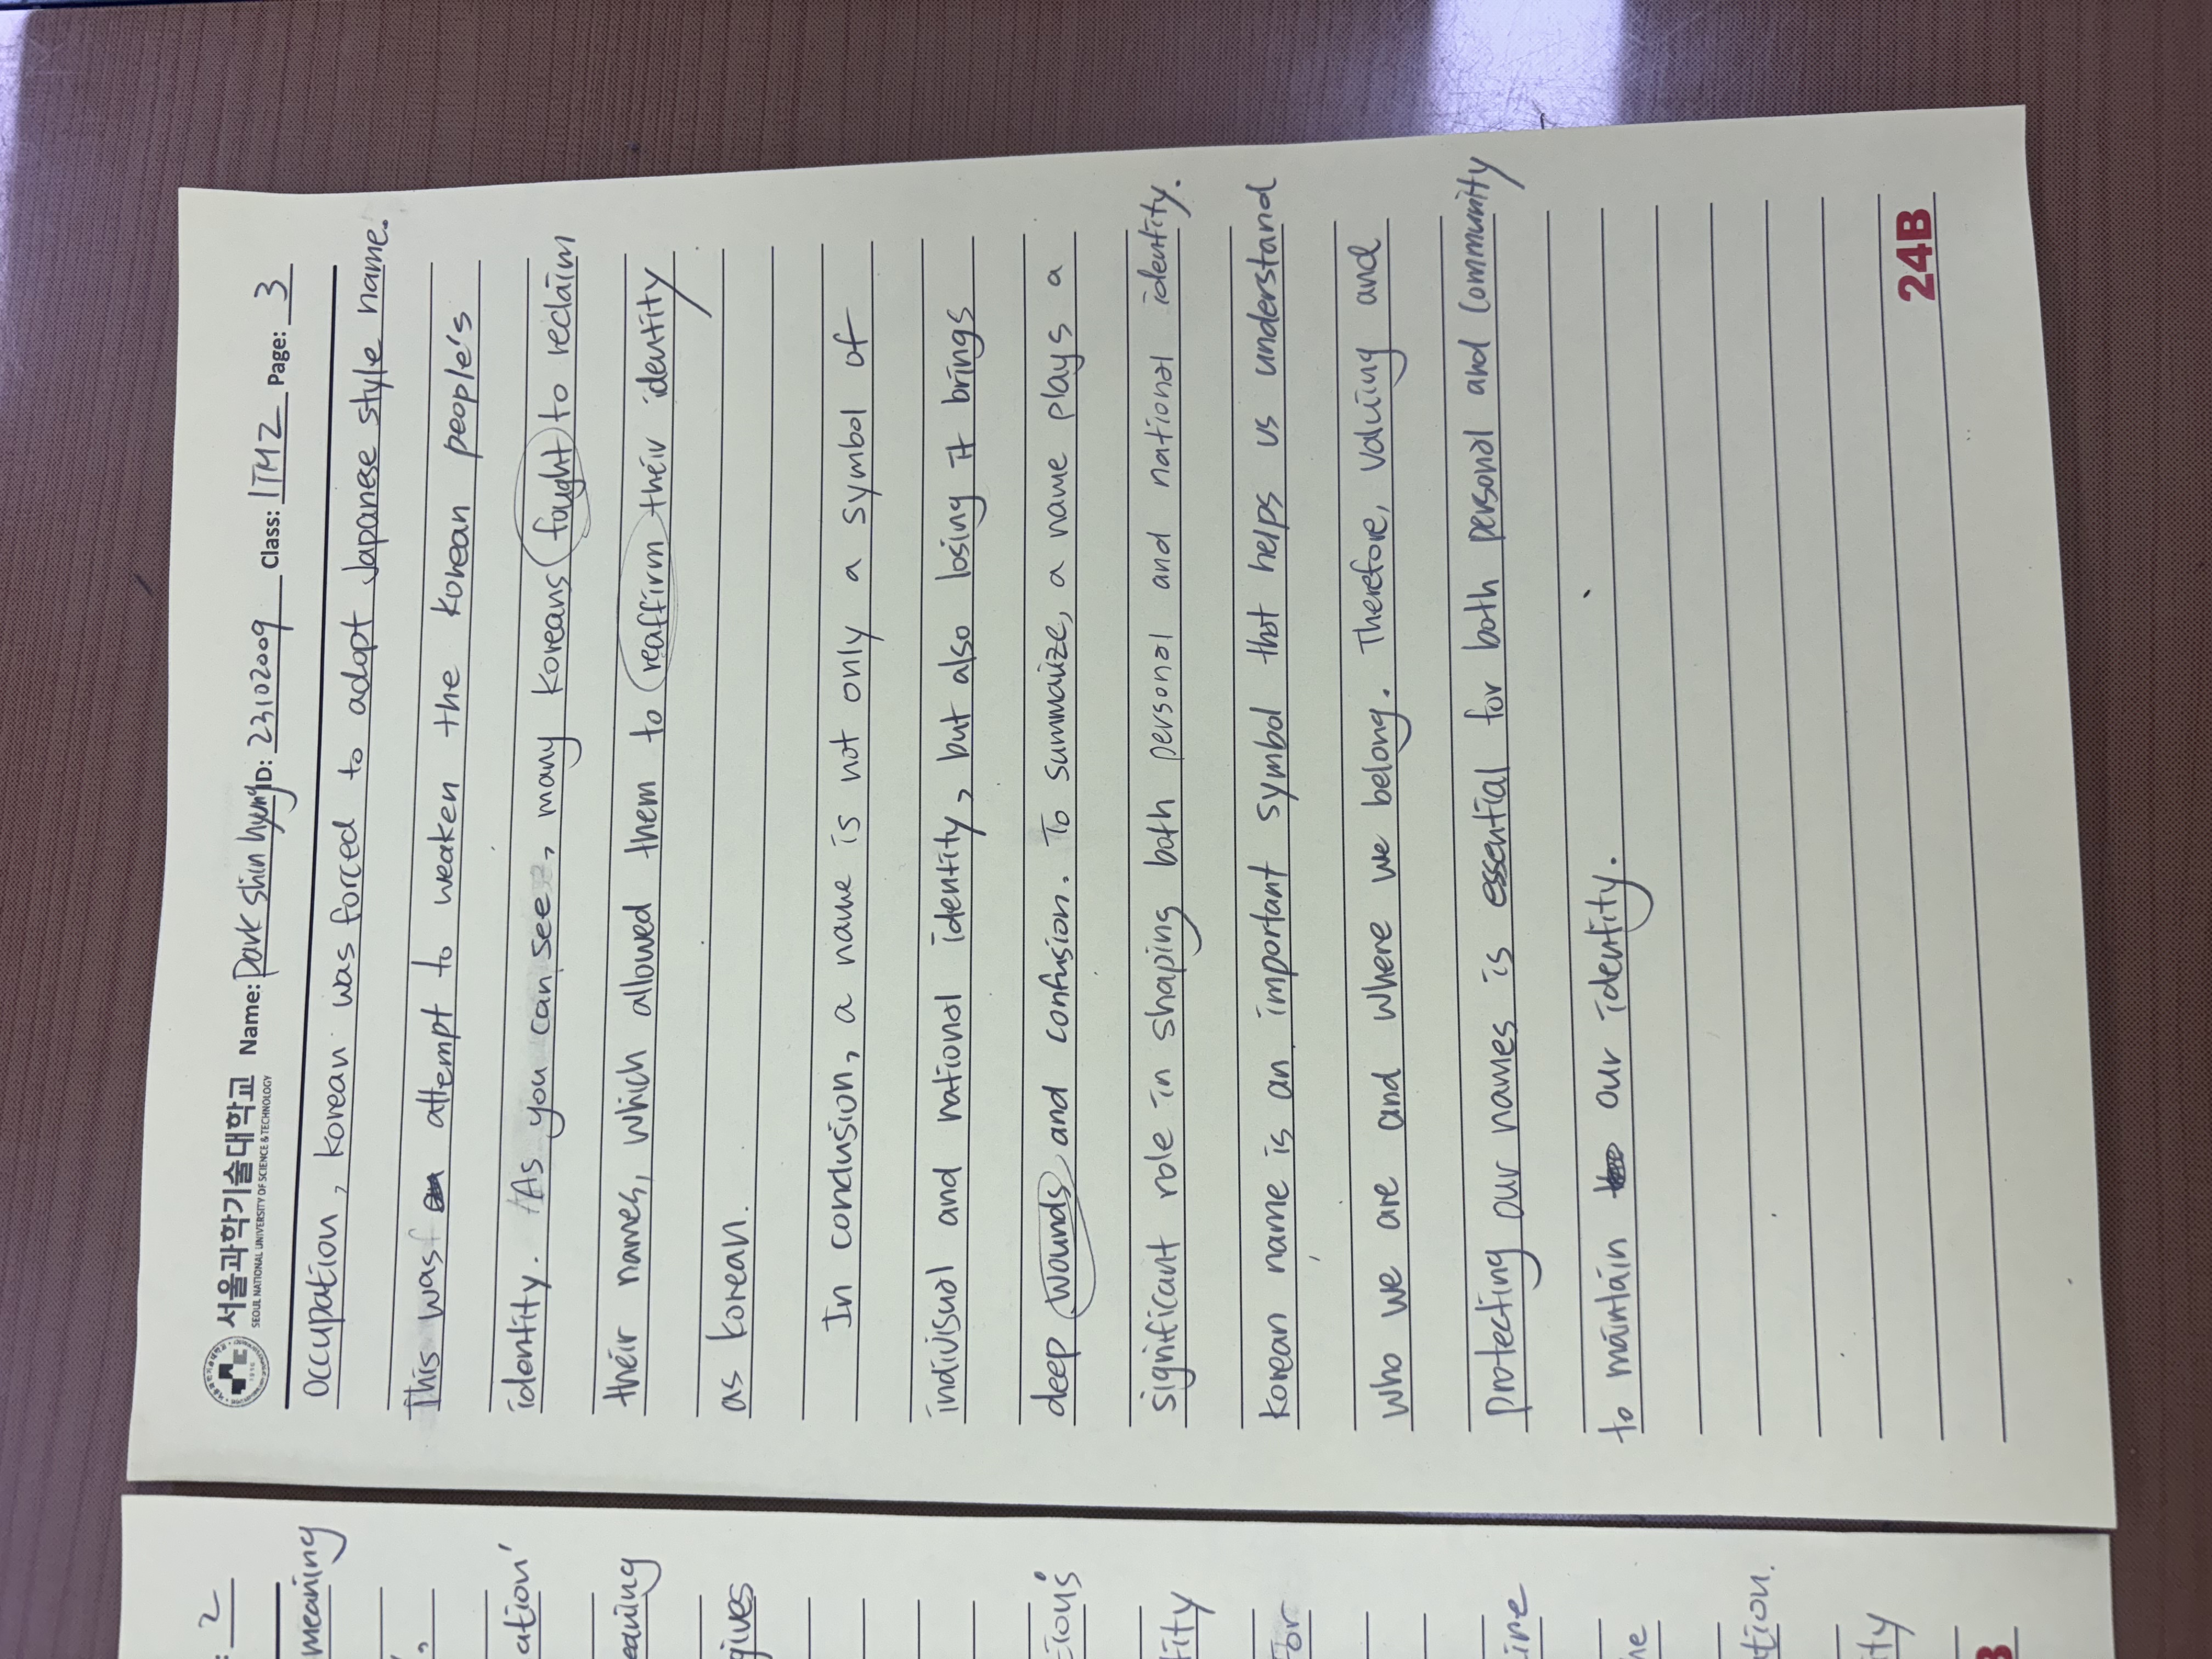 : 2
meaning
,
ation'
eaning
gives
tious
tity
For
ine
he
ation.
ity
B
서울과학기술대학교
SEOUL NATIONAL UNIVERSITY OF SCIENCE & TECHNOLOGY
Name: Park Shin hyung ID: 23102009 Class: ITM2 Page: 3
occupation, korean was forced to adopt Japanese style name.
This was attempt to weaken the korean people's
identity. As you can see, many koreans fought to reclaim
their names, which allowed them to reaffirm their identity
as korean.
In conclusion, a name is not only a symbol of
indivisual and national identity, but also losing it brings
deep wounds and confusion. To summarize, a name plays a
significant role in shaping both personal and national identity.
korean name is an important symbol that helps us understand
who we are and where we belong. Therefore, valuing and
protecting our names is essential for both personal and community
to maintain our identity.
24B